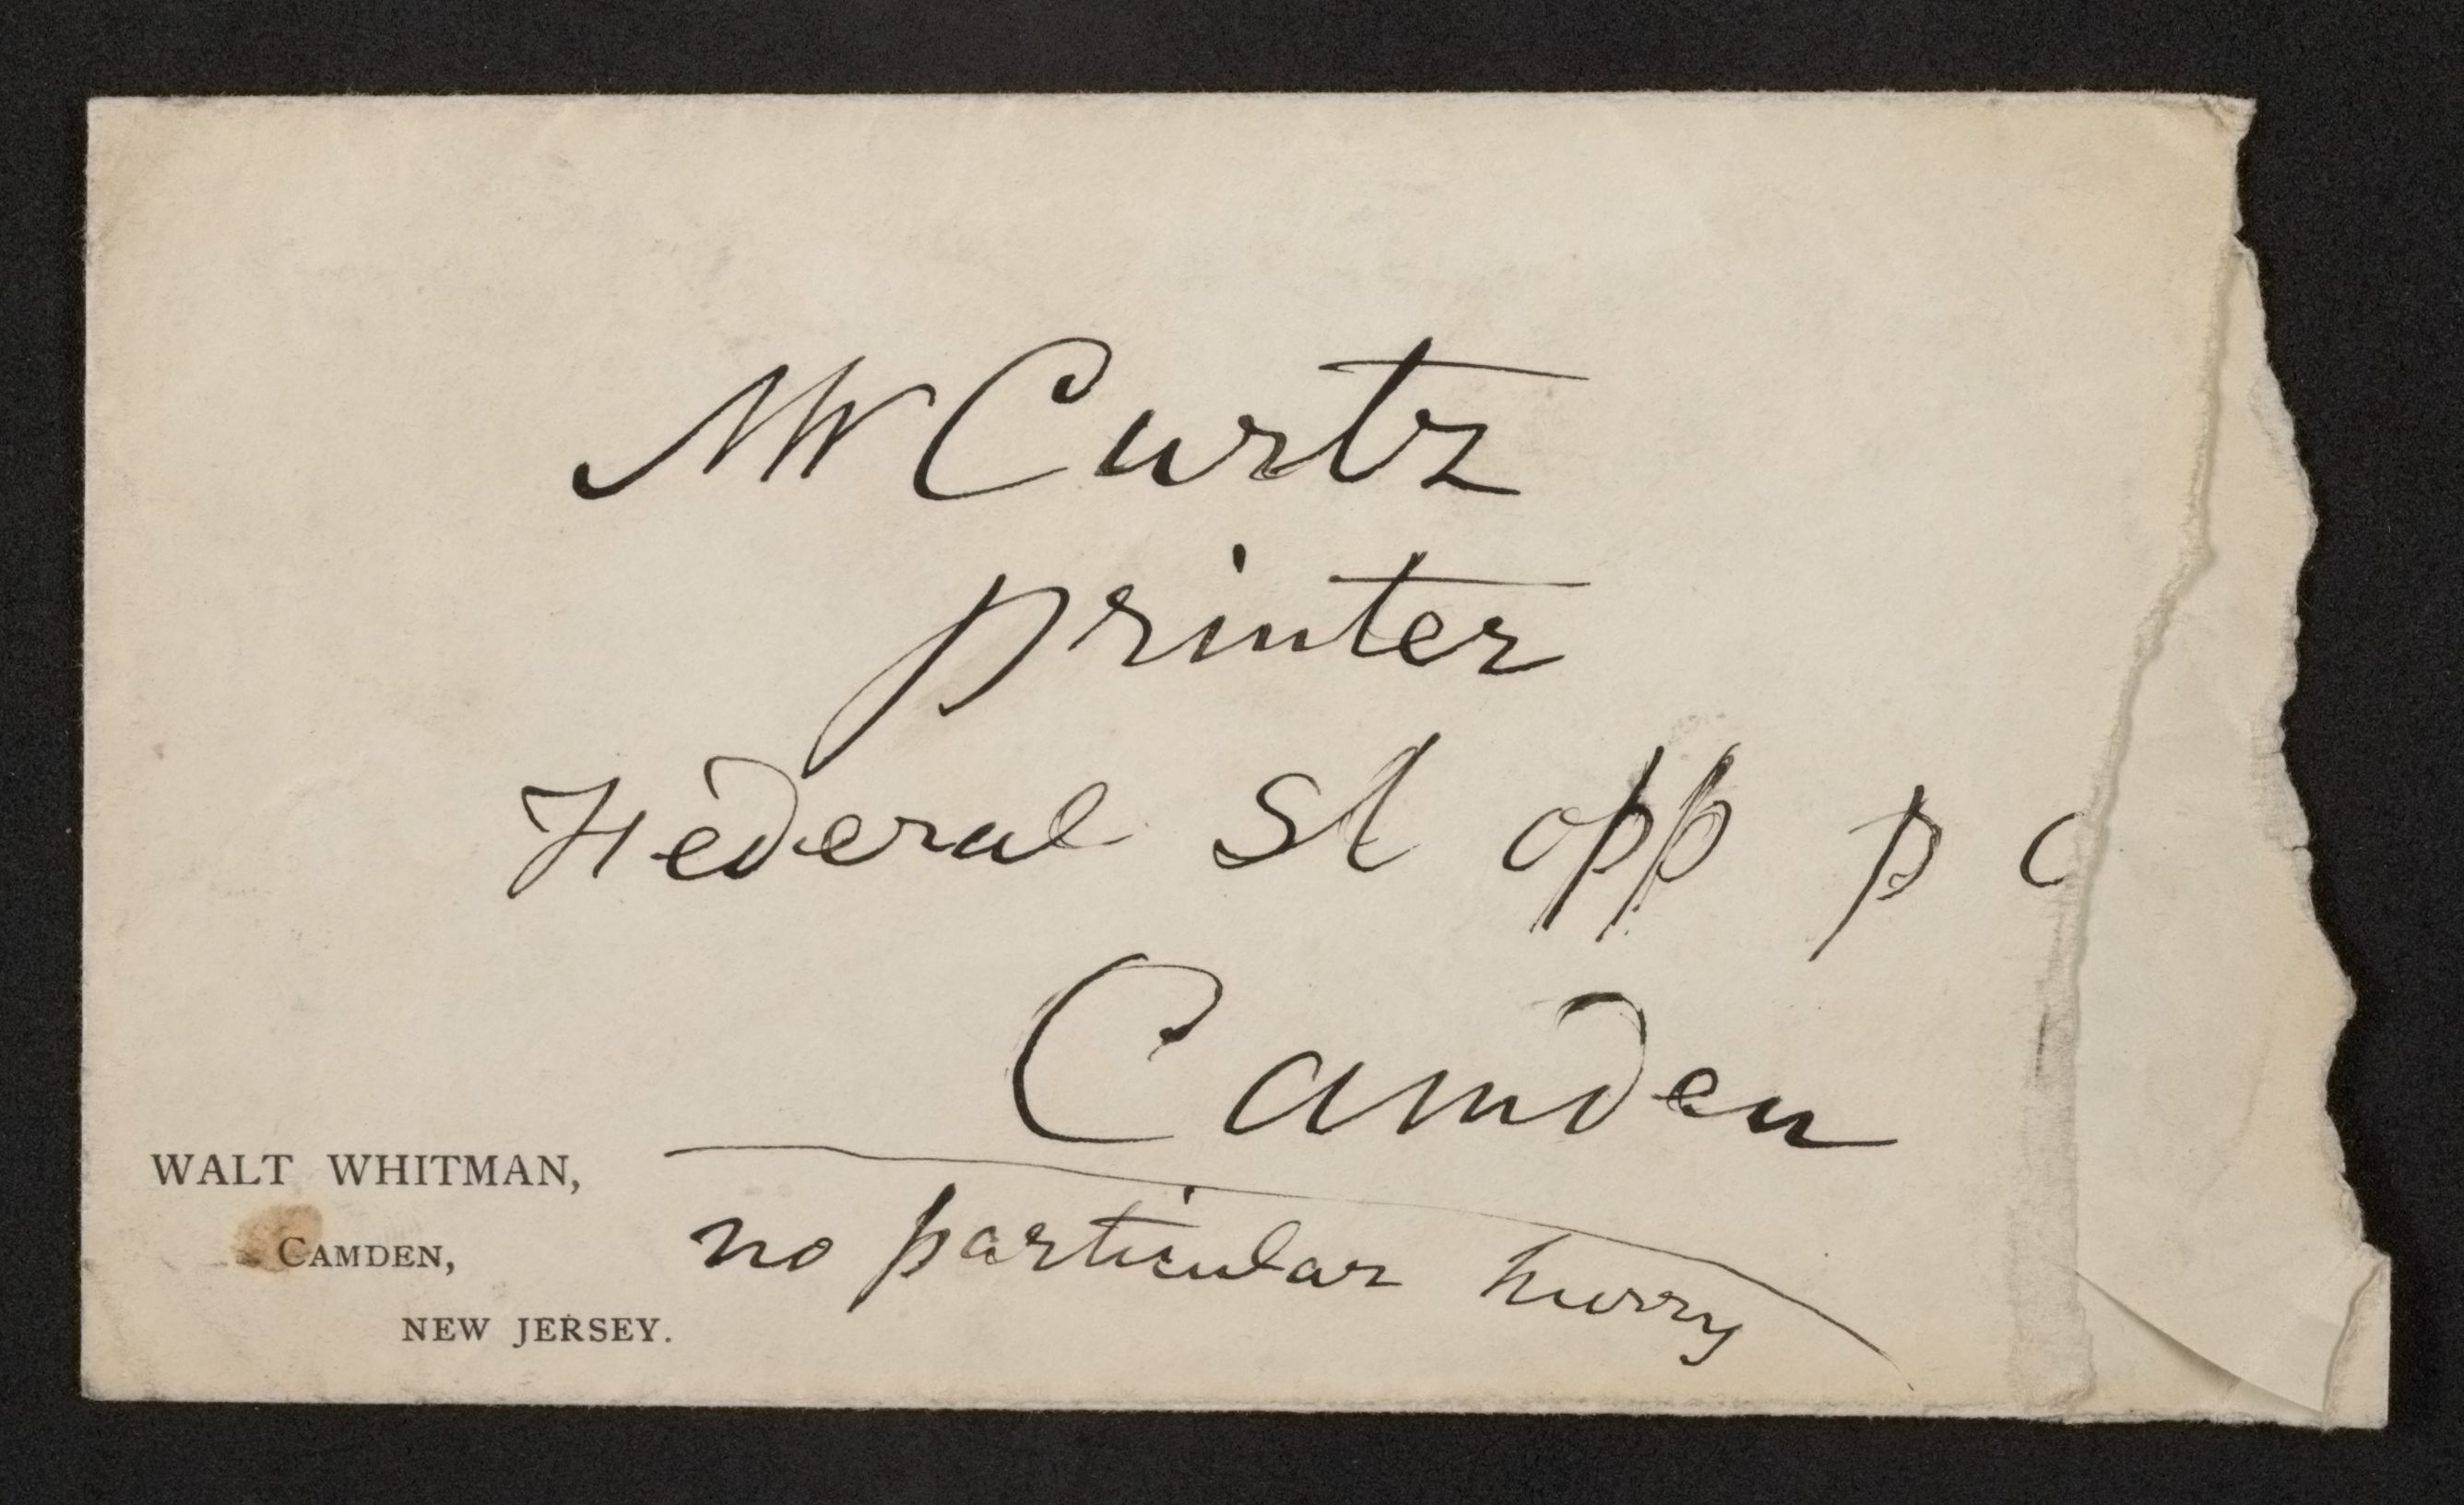 Mr Curtz
printer
Federal St opp p o
Camden
no particular hurry
WALT WHITMAN,
CAMDEN,
NEW JERSEY.